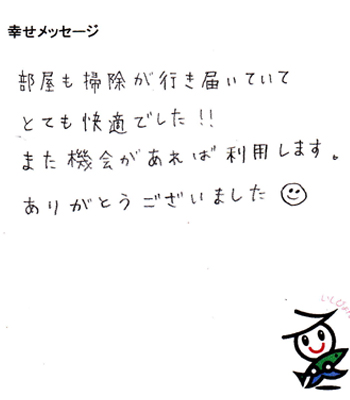 幸せメッセージ
部屋も掃除が行き届いていて
とても快適でした!!
また機会があれば利用します。
ありがとうございました